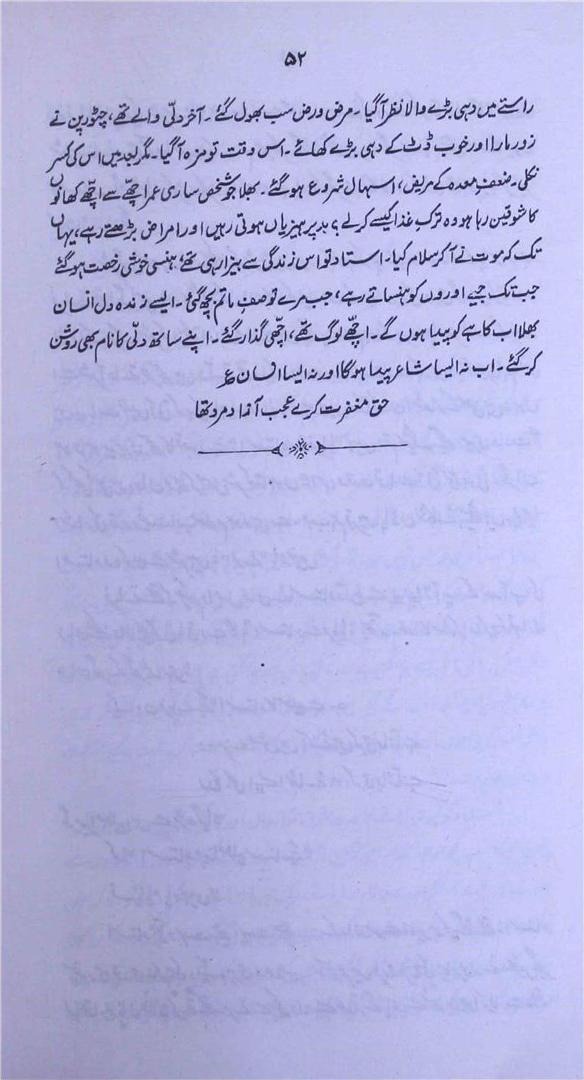 ۵۲
راستے میں دہی بڑے والا نظر آگیا۔ مرض ورض سب بھول گئے۔ آخر دلّی والے تھے، چٹورپن نے
زور مارا اور خوب ڈٹ کے دہی بڑے کھائے۔ اس وقت تو مزہ آگیا۔ مگر بعد میں اس کی کسر
نکلی۔ ضعفِ معدہ کے مریض، اسہال شروع ہوگئے۔ بھلا جو شخص ساری عمر اچھے سے اچھے کھانوں
کا شوقین رہا ہو وہ ترکِ غذا کیسے کرلے؟ بدپرہیزیاں ہوتی رہیں اور امراض بڑھتے رہے، یہاں
تک کہ موت نے آکر سلام کیا۔ استاد تو اس زندگی سے بیزار ہی تھے، ہنسی خوشی رخصت ہوگئے
جب تک جیے اوروں کو ہنساتے رہے، جب مرے تو صفِ ماتم بچھ گئی۔ ایسے زندہ دل انسان
بھلا اب کاہے کو پیدا ہوں گے۔ اچھے لوگ تھے، اچھی گذار گئے۔ اپنے ساتھ دلّی کا نام بھی روشن
کر گئے۔ اب نہ ایسا شاعر پیدا ہوگا اور نہ ایسا انسان ؏
حق مغفرت کرے عجب آزاد مرد تھا